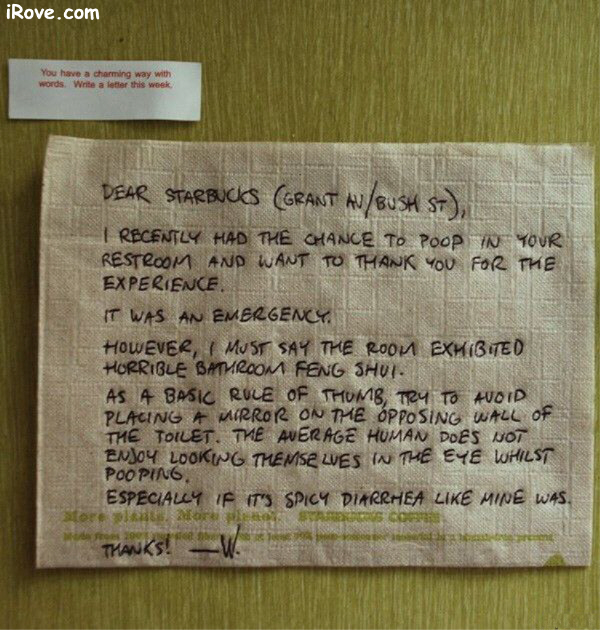 iRove.com
You have a charming way with
words. Write a letter this week.
DEAR STARBUCKS (GRANT AV/BUSH ST),
I RECENTLY HAD THE CHANCE TO POOP IN YOUR
RESTROOM AND WANT TO THANK YOU FOR THE
EXPERIENCE.
IT WAS AN EMERGENCY.
HOWEVER, I MUST SAY THE ROOM EXHIBITED
HORRIBLE BATHROOM FENG SHUI.
AS A BASIC RULE OF THUMB, TRY TO AVOID
PLACING A MIRROR ON THE OPPOSING WALL OF
THE TOILET. THE AVERAGE HUMAN DOES NOT
ENJOY LOOKING THEMSELVES IN THE EYE WHILST
POOPING.
ESPECIALLY IF IT'S SPICY DIARRHEA LIKE MINE WAS.
More plants. More planet. STARBUCKS COFFEE
THANKS! —W.